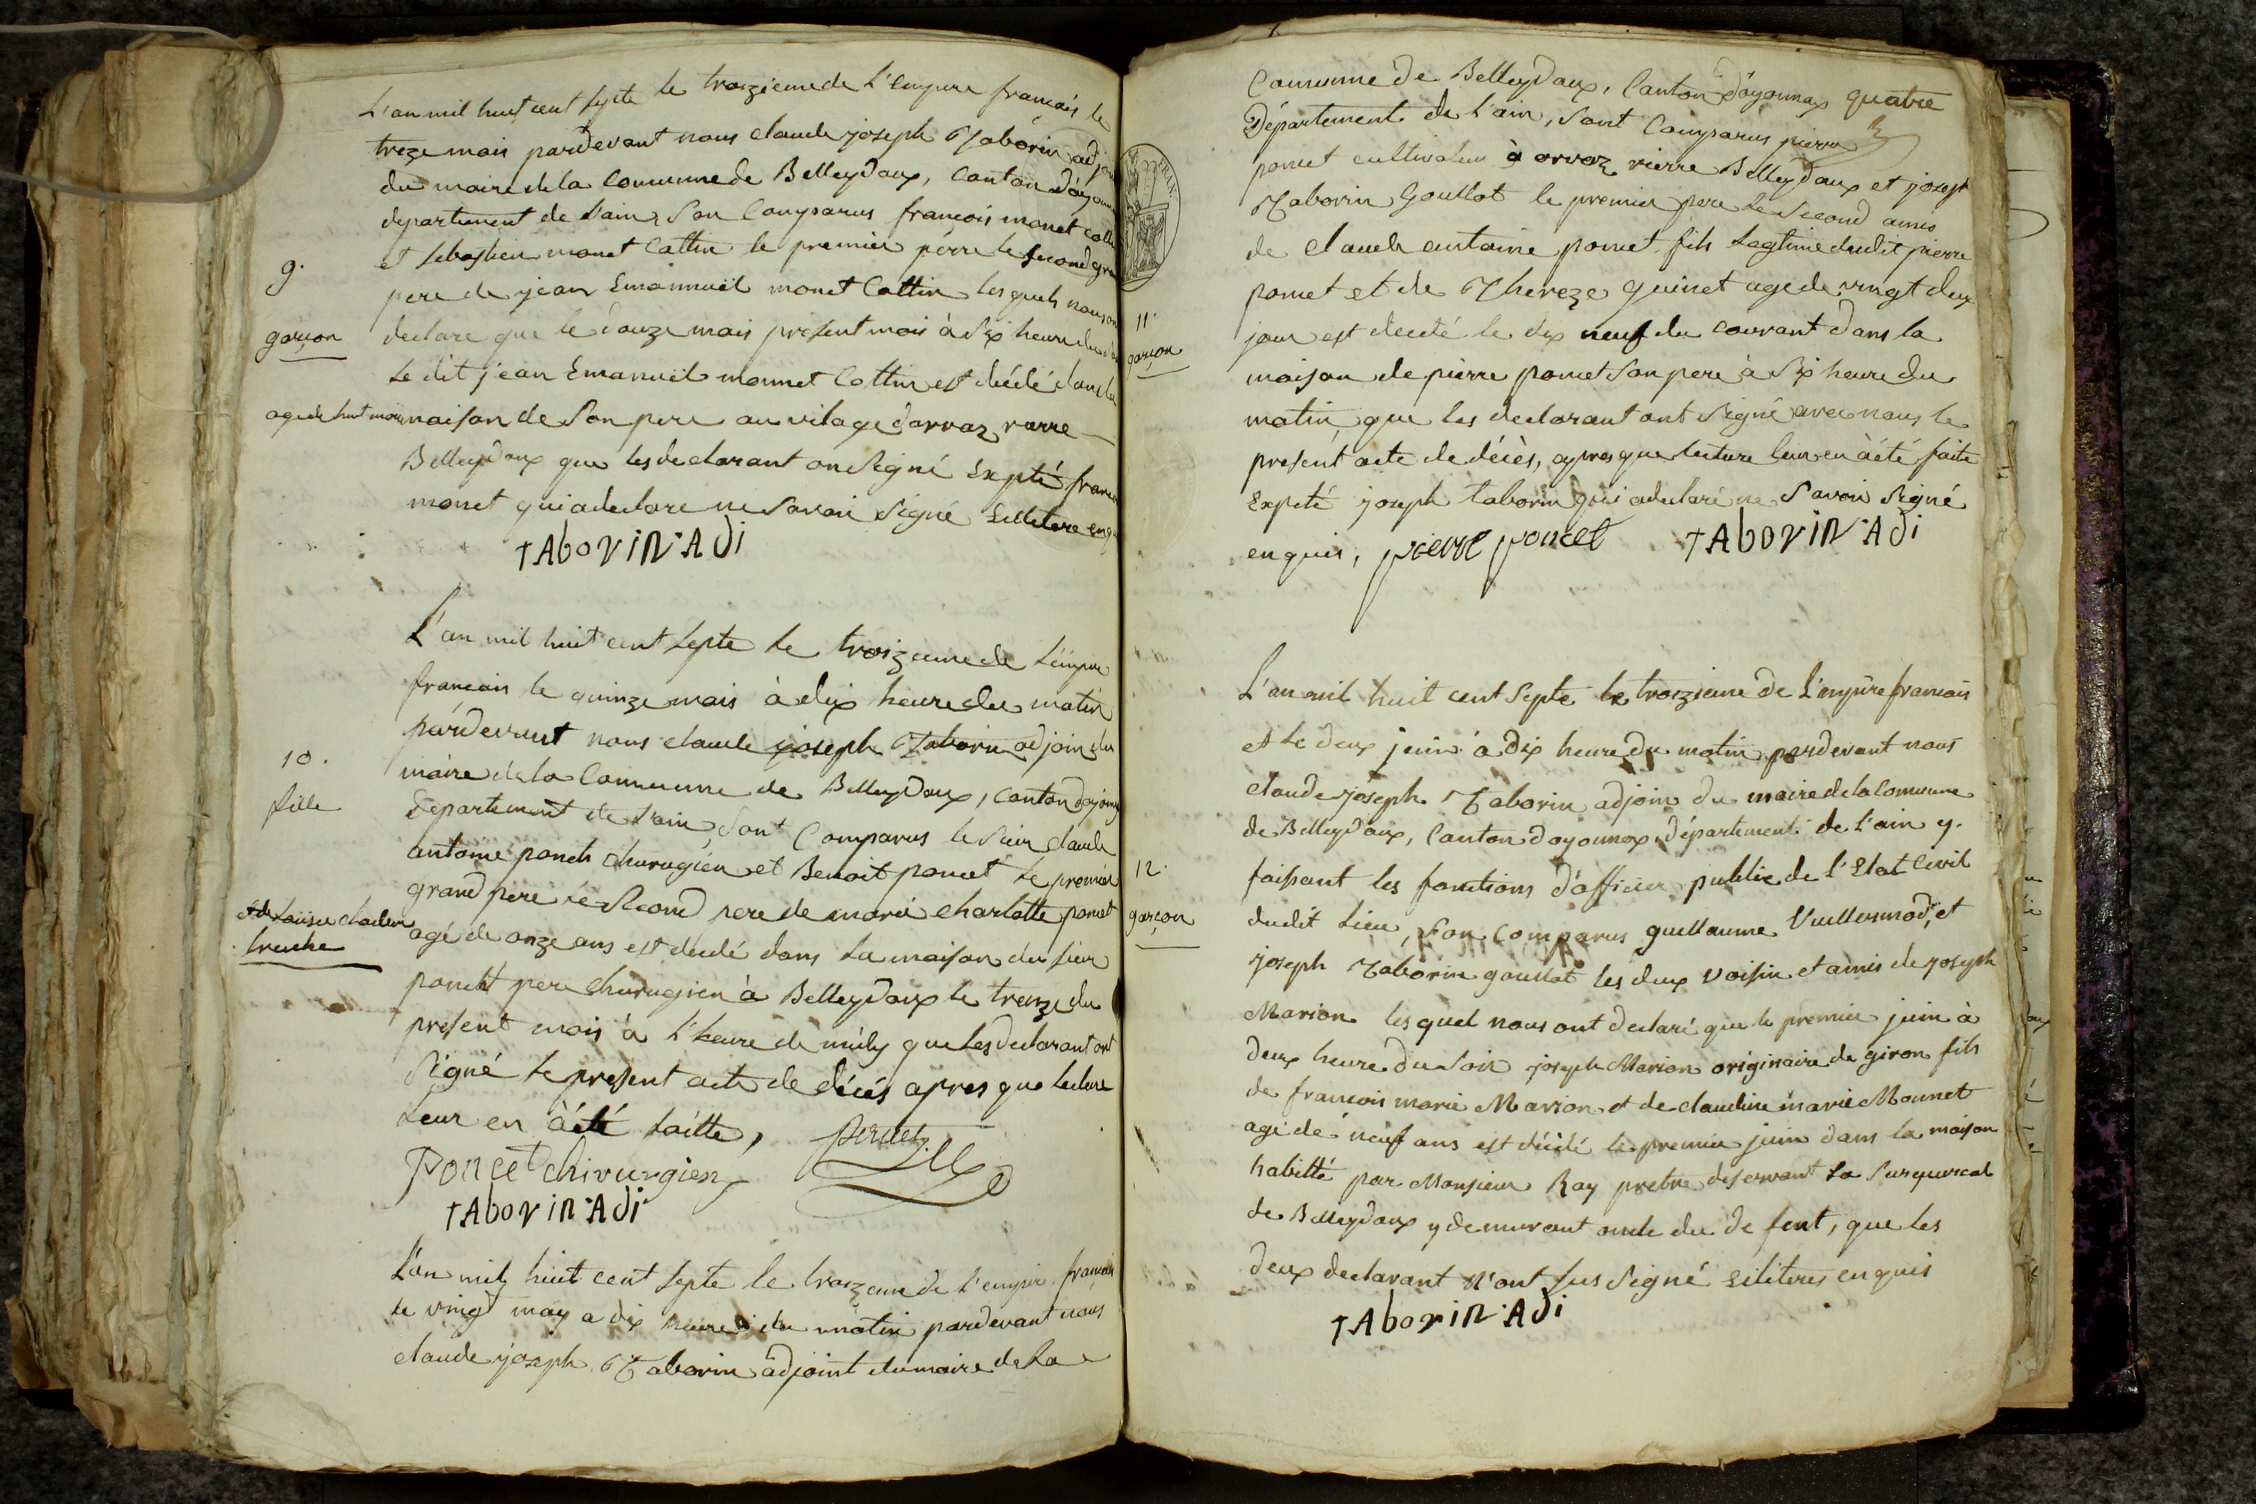 L'an mil huit cent septe le troizieme de L'empire francais le
treze mais pardevant nous claude joseph Taborin adjoin
du maire de la Commune de Belleydoux, Canton doyonn
departement de L'ain, Son Comparus francois monet Cottin
et Sebastien monet Cattin le premier pérre le second gran
9.
pere de jean Emannuël monet Cottin les quels nous on
garçon
declare que le douze mais present mois à Six heure du
Le dit jean Emanuël monnet Cottin est décdé dans la
age de huit mois
maison de Son pere au vilage d'orvaz vierre
Belleydoux que les declarant on Signé Expté francoi
monet qui a declare ne Savoir Signé
tAborin Adj
L'an mil huit cent Septe le troizeme de Lempire
francais le quinze mais à dix heure du matin
pardevant nous claude joseph Taborin adjoin du
10.
maire de la Commune de Belleydoux, Canton doyonn
fille
Departement de L'ain, Sont Comparus le Sieur claude
antoine poncet churugien et Benoit poncet Le premier
grand pere le Second pere de marie charlotte poncet
et de Louise
agé de onze ans est decdé dans La maison du Sieur
poncet pere churugien à Belleydoux le treize du
present mois à L'heure de midy que Les declarant ont
Signé Le present acte de décés apres que lecture
Leur en à été faitte,
Poncet chirurgien
tAborin Adj
L'an mil huit cent Septe le troizeme de L'empire francais
le vingt may a dix heure du matin pardevant nous
claude joseph Taborin adjoint du maire de La
Commune de Belleydoux, Canton d'oyonnax quatre
Département de L'ain, Sont Comparus pierre
poncet cultivateur à orvaz vierre Belleydoux et joseph
Taborin Goullot le premier pere Le Second amis
de claude antoine poncet fils Legtime dudit pierre
poncet et de Thereze Guinet age de vingt deux
11.
jour est decedé le dix neuf du courant dans la
garçon
maison de pierre poncet Son pere à Six heure du
matin que les declarant ont Signé avec nous le
present acte de décès, apres que lecture leur en à été faite
Expeté joseph taborin qui a declaré ne Savoir Signé
enquis, pierre poncet tAborin Adj
L'an mil huit cent Septe le troizieme de L'empire francais
et Le deux juin à dix heure du matin pardevant nous
claude joseph Taborin adjoin du maire de la Commune
de Belleydoux, Canton doyonnax département de L'ain y.
12.
faissant les fonctions d'afficier public de l'Etat Civil
garçon
dudit Lieu, Son Comparus guellaume Vuillermod, et
joseph Taborin goullot les deux voisin et amis de joseph
Marion les quel nous ont declaré que le premier juin à
deux heure du Soir joseph Marion originaire de giron fils
de francois marie Marion et de claudine marie Monnet
agé de neuf ans est décdé le premier juin dans la maison
habitté par Monsieur Ray pretre deservant La Surqursal
de Belleydoux y demeurant oncle du de funt, que les
deux declarant n'ont Sus Signé enquis
tAborin Adj